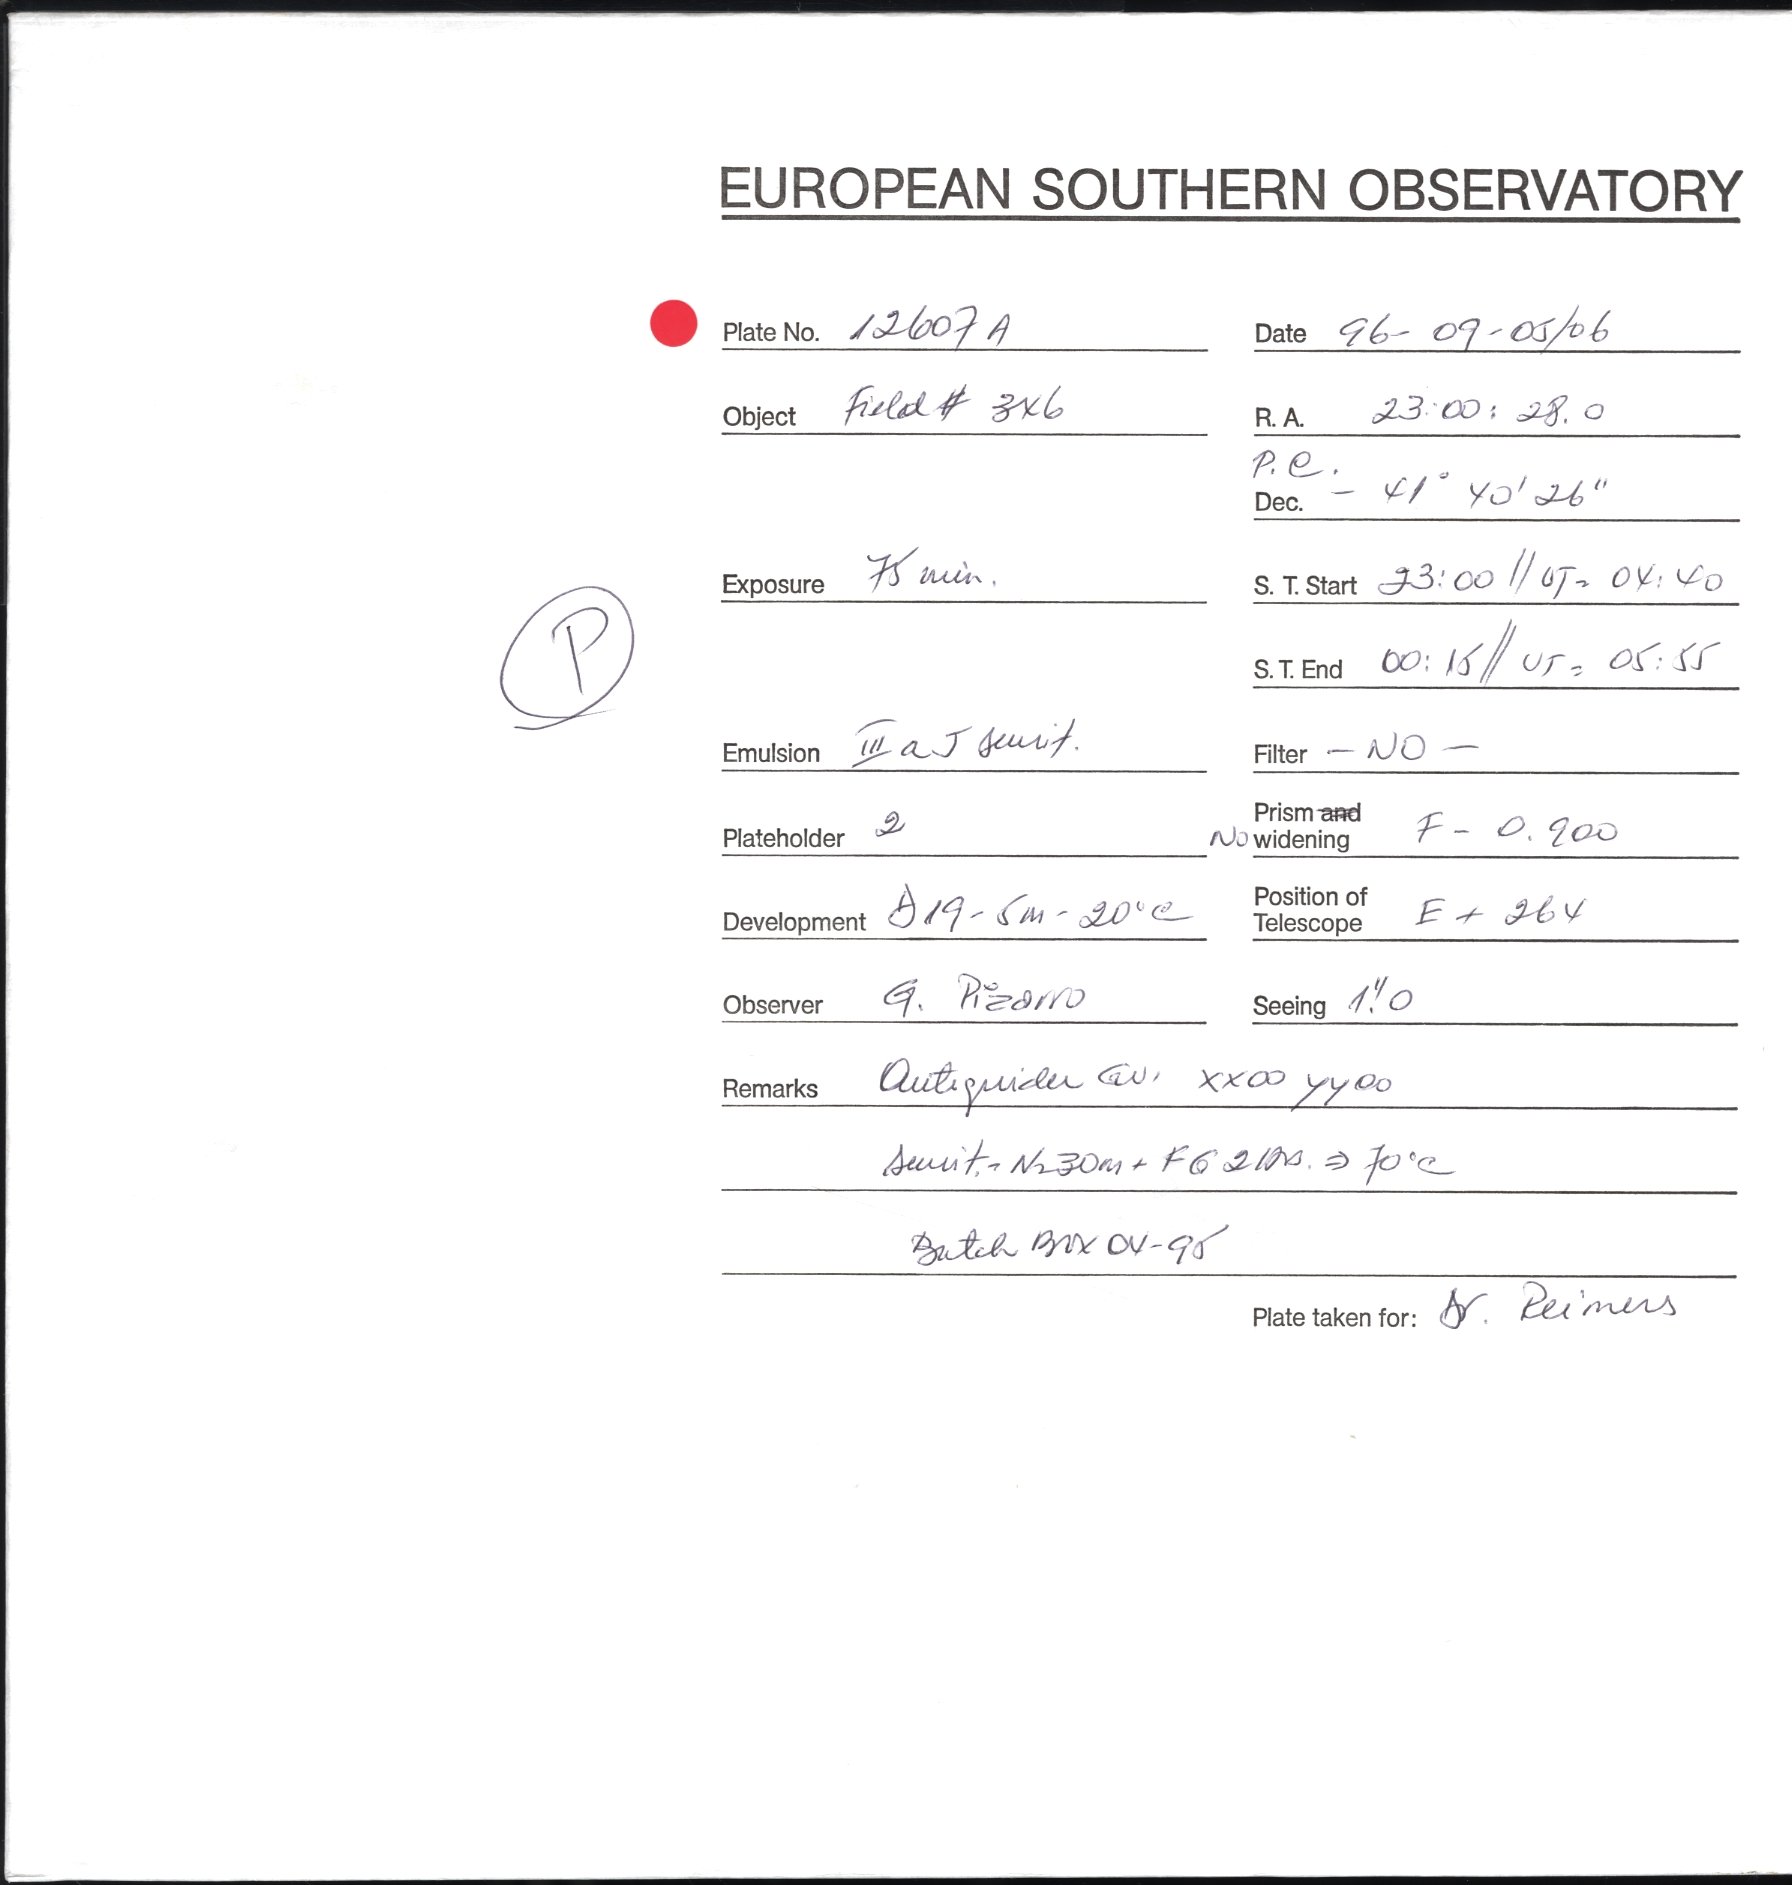 EUROPEAN SOUTHERN OBSERVATORY
Plate No. 12607 A
Date 96-09-05/06
Object Field # 346
R. A. 23:00:28.0
P.C.
Dec. - 41° 40' 26"
Exposure 75 min.
S. T. Start 23:00 // UT= 04:40
P
S. T. End 00:15 // UT= 05:55
Emulsion III a J sensit.
Filter - NO -
Plateholder 2
Prism and
No widening F - 0.900
Development D19-5m-20°C
Position of
Telescope E + 264
Observer G. Pizarro
Seeing 1."0
Remarks Autoguider xx00 yy00
sensit.= N2 30m + FG 2 hrs. ⇒ 70°C
Batch Box 04-95
Plate taken for: Dr. Reimers